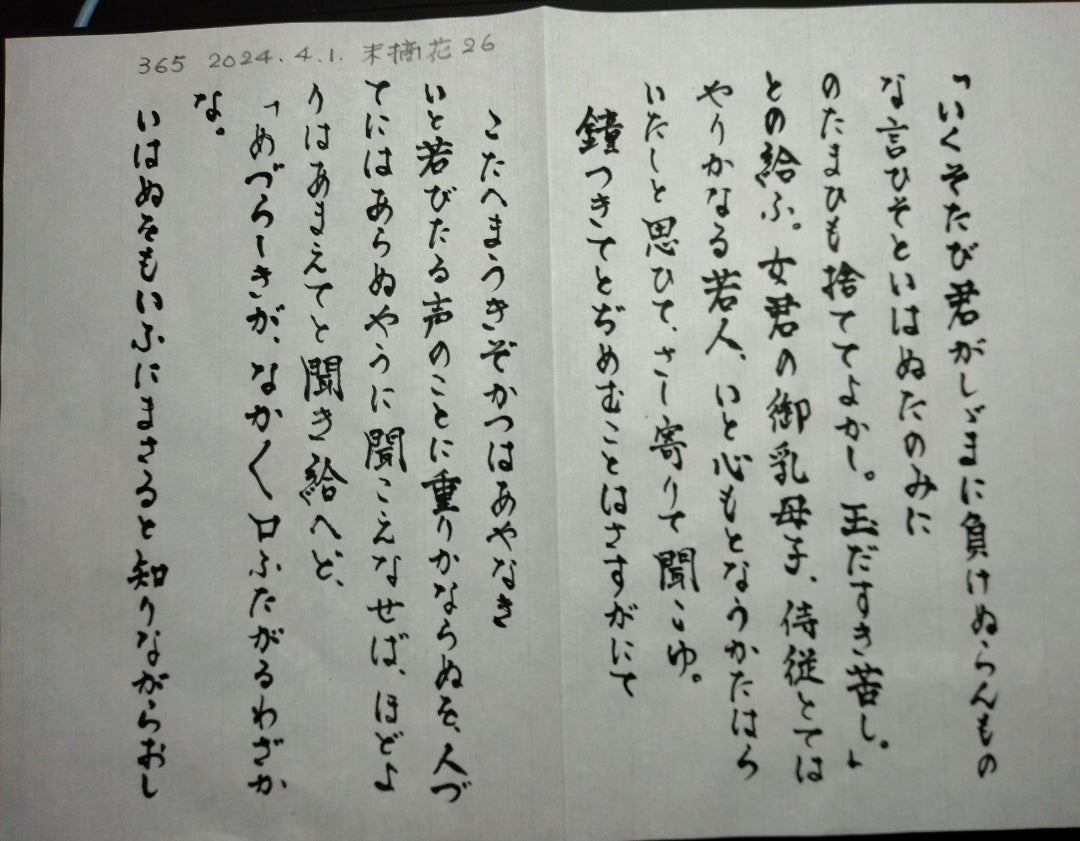 365 2024.4.1. 末摘花26
「いくそたび君がしゞまに負けぬらんもの
な言ひそといはぬたのみに
のたまひも捨ててよかし。玉だすき苦し。」
との給ふ。女君の御乳母子、侍従とては
やりかなる若人、いと心もとなうかたはら
いたしと思ひて、さし寄りて聞こゆ。
鐘つきてとぢめむことはさすがにて
こたへまうきぞかつはあやなき
いと若びたる声のことに重りかならぬを、人づ
てにはあらぬやうに聞こえなせば、ほどよ
りはあまえてと聞き給へど、
「めづらしきが、なか〱口ふたがるわざか
な。
いはぬをもいふにまさると知りながらおし